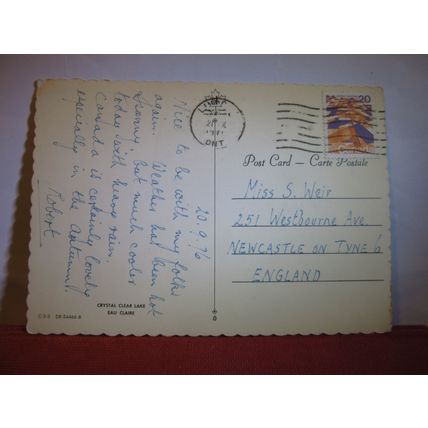 20.9.76
Nice to be with my folks
again. Weather has been hot
& sunny, but much cooler
today with heavy rain.
Canada is certainly lovely
especially in the autumn.
Robert
ONT
20
Post Card — Carte Postale
Miss S. Weir
251 Westbourne Ave.
NEWCASTLE ON TYNE 6
ENGLAND
CRYSTAL CLEAR LAKE
EAU CLAIRE